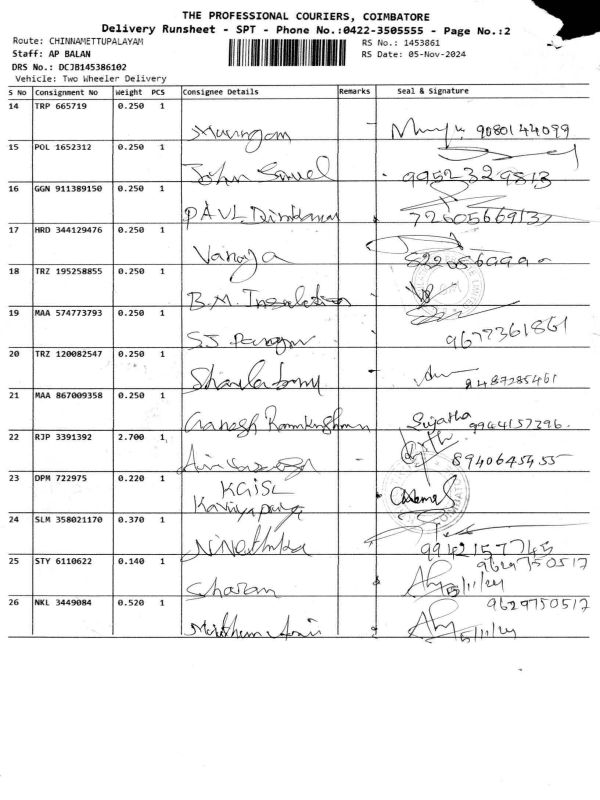 THE PROFESSIONAL COURIERS, COIMBATORE
Delivery Runsheet - SPT - Phone No.:0422-3505555 - Page No.:2
Route: CHINNAMETTUPALAYAM
RS No.: 1453861
Staff: AP BALAN
RS Date: 05-Nov-2024
DRS No.: DCJB145386102
Vehicle: Two Wheeler Delivery
S No Consignment No Weight PCS Consignee Details Remarks Seal & Signature
14 TRP 665719 0.250 1
Murugan 9080144099
15 POL 1652312 0.250 1
John Samuel 9952329813
16 GGN 911389150 0.250 1
PAUL 7260566913
17 HRD 344129476 0.250 1
Vanaja
18 TRZ 195258855 0.250 1
B.M. Insulation
19 MAA 574773793 0.250 1
S.J 9677361861
20 TRZ 120082547 0.250 1
9487285461
21 MAA 867009358 0.250 1
Ganesh Ramkrishnan Sujatha 9944157296.
22 RJP 3391392 2.700 1
8940645455
23 DPM 722975 0.220 1
KGISL
24 SLM 358021170 0.370 1
Nivethika 9942157745
25 STY 6110622 0.140 1
9629750517
Charan 5/11/24
26 NKL 3449084 0.520 1
9629750517
5/11/24